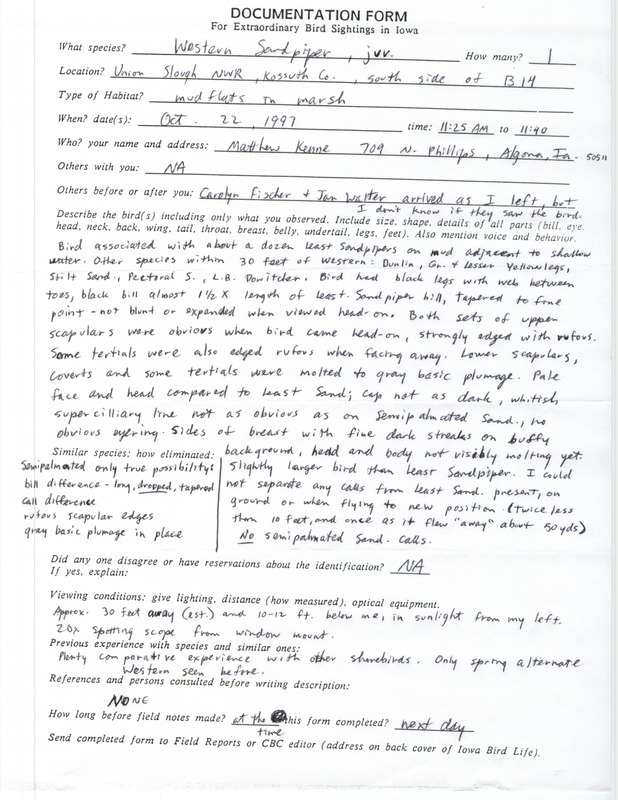 DOCUMENTATION FORM
For Extraordinary Bird Sightings in Iowa
What species? Western Sandpiper, juv. How many? 1
Location? Union Slough NWR, Kossuth Co., south side of B14
Type of Habitat? mudflats in marsh
When? date(s): Oct. 22, 1997 time: 11:25 AM to 11:40
Who? your name and address: Matthew Kenne 709 N. Phillips, Algona, Ia. 50511
Others with you: NA
Others before or after you: Carolyn Fischer + Jan Walter arrived as I left, but
I don't know if they saw the bird.
Describe the bird(s) including only what you observed. Include size, shape, details of all parts (bill, eye,
head, neck, back, wing, tail, throat, breast, belly, undertail, legs, feet). Also mention voice and behavior.
Bird associated with about a dozen least Sandpipers on mud adjacent to shallow
water. Other species within 30 feet of Western: Dunlin, Gr. & Lesser Yellowlegs,
Stilt Sand., Pectoral S., L.B. Dowitcher. Bird had black legs with web between
toes, black bill almost 1½ X length of least. Sandpiper bill, tapered to fine
point - not blunt or expanded when viewed head-on. Both sets of upper
scapulars were obvious when bird came head-on, strongly edged with rufous.
Some tertials were also edged rufous when facing away. Lower scapulars,
coverts and some tertials were molted to gray basic plumage. Pale
face and head compared to Least Sand; cap not as dark, whitish
supercilliary line not as obvious as on Semipalmated Sand., no
obvious eyering. Sides of breast with fine dark streaks on buffy
background, head and body not visibly molting yet.
Slightly larger bird than least Sandpiper. I could
not separate any calls from least Sand. present, on
ground or when flying to new position. (twice less
than 10 feet, and once as it flew "away" about 50 yds)
No semipalmated Sand. calls.
Similar species; how eliminated:
Semipalmated only true possibility:
bill difference - long, drooped, tapered
call difference
rufous scapular edges
gray basic plumage in place
Did any one disagree or have reservations about the identification? NA
If yes, explain:
Viewing conditions: give lighting, distance (how measured), optical equipment.
Approx. 30 feet away (est.) and 10-12 ft. below me, in sunlight from my left.
20x spotting scope from window mount.
Previous experience with species and similar ones:
Plenty comparative experience with other shorebirds. Only spring alternate
Western seen before.
References and persons consulted before writing description:
NONE
How long before field notes made? at the time this form completed? next day
Send completed form to Field Reports or CBC editor (address on back cover of Iowa Bird Life).